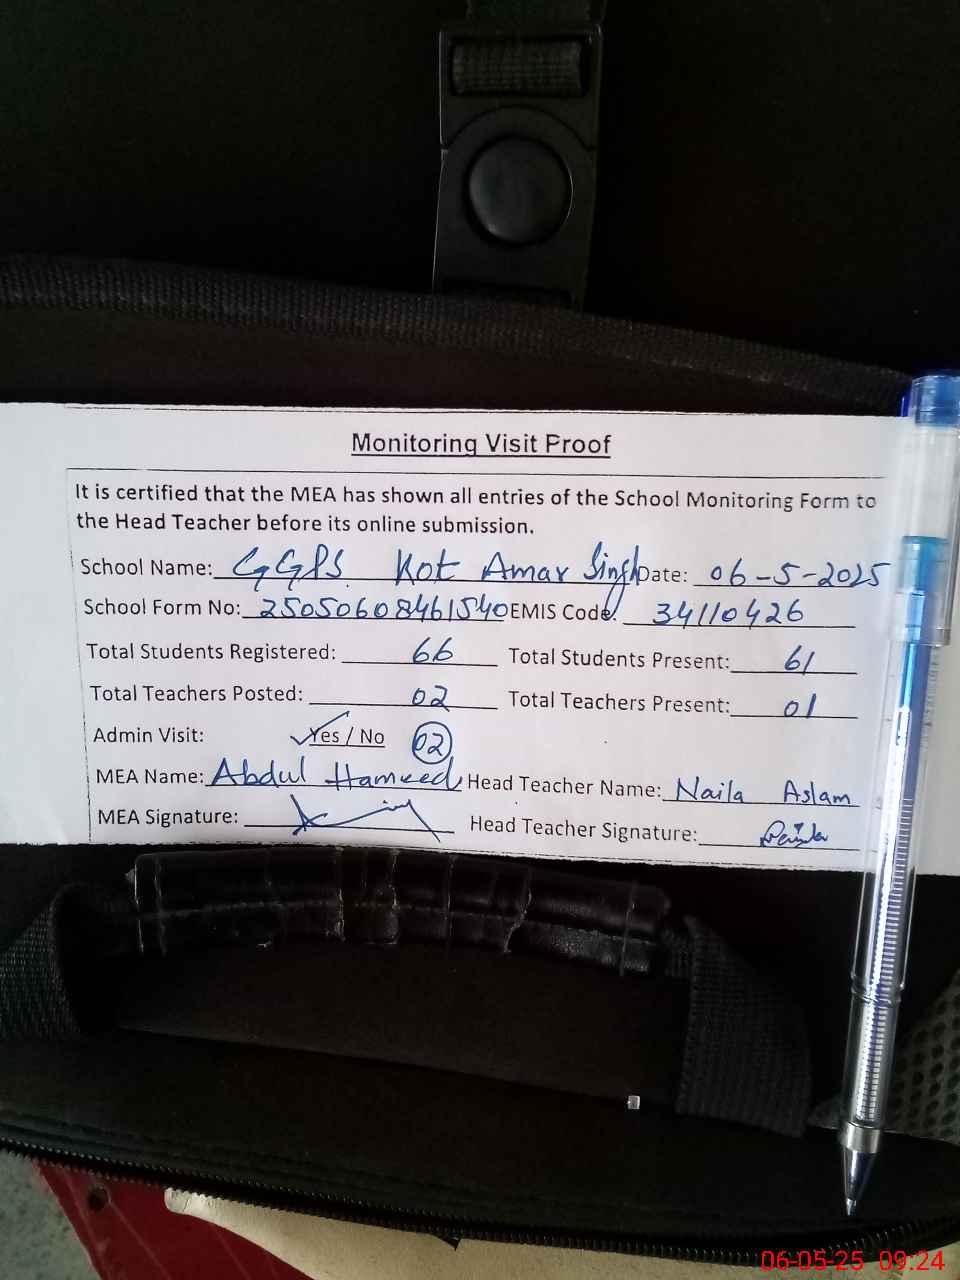 Monitoring Visit Proof
It is certified that the MEA has shown all entries of the School Monitoring Form to
the Head Teacher before its online submission.
School Name: GGPS Kot Amar Singh Date: 06-5-2025
School Form No: 25050608461540 EMIS Code: 34110426
Total Students Registered: 66 Total Students Present: 61
Total Teachers Posted: 02 Total Teachers Present: 01
Admin Visit: Yes / No 02
MEA Name: Abdul Hameed Head Teacher Name: Naila Aslam
MEA Signature: Head Teacher Signature:
06-05-25 09:24